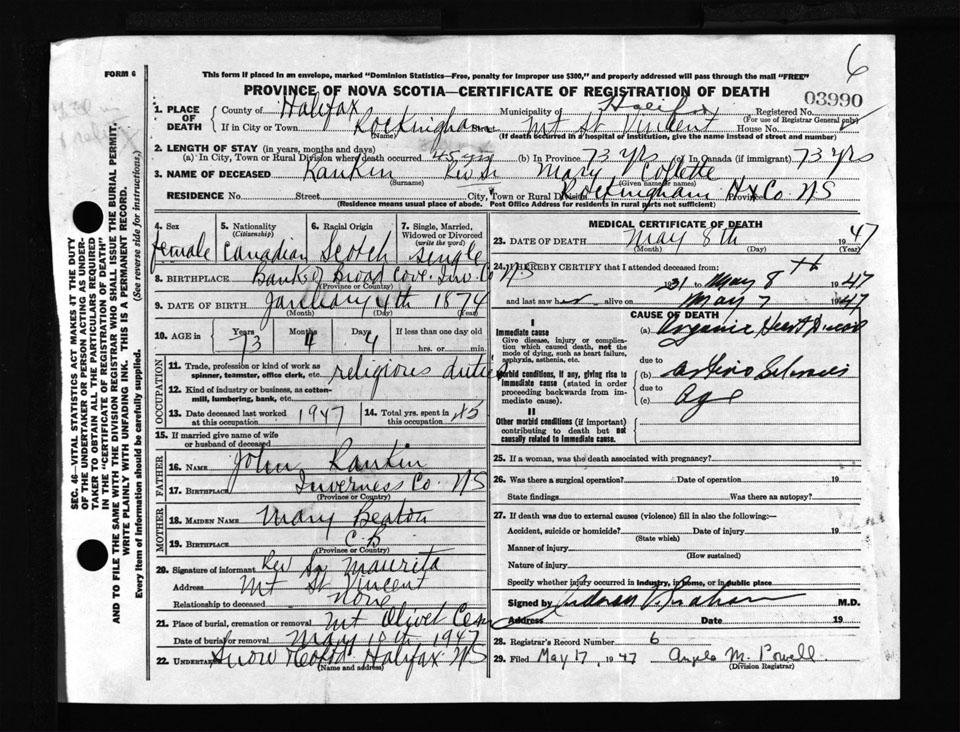 6
FORM 6
This form if placed in an envelope, marked "Dominion Statistics—Free, penalty for improper use $300," and properly addressed will pass through the mail "FREE"
PROVINCE OF NOVA SCOTIA—CERTIFICATE OF REGISTRATION OF DEATH
03990
1. PLACE OF DEATH County of Halifax Municipality of Halifax Registered No.
(For use of Registrar General only)
If in City or Town Rockingham Mt St Vincent House No.
(Name) (If death occurred in a hospital or institution, give the name instead of street and number)
2. LENGTH OF STAY (in years, months and days)
(a) In City, Town or Rural Division where death occurred 45 yrs (b) In Province 73 yrs (c) In Canada (if immigrant) 73 yrs
3. NAME OF DECEASED Rankin Rev Sr Mary Collette
(Surname) (Given name or names)
RESIDENCE No. Street City, Town or Rural Division Rockingham Hx Co. NS Province
(Residence means usual place of abode. Post Office Address for residents in rural parts not sufficient)
4. Sex female
5. Nationality (Citizenship) Canadian
6. Racial Origin Scotch
7. Single, Married, Widowed or Divorced (write the word) Single
8. BIRTHPLACE Banks Broad Cove Inv. Co NS
(Province or Country)
9. DATE OF BIRTH January 4th 1874
(Month) (Day) (Year)
10. AGE in Years 73 Months 4 Days 4 If less than one day old
hrs. or min.
OCCUPATION
11. Trade, profession or kind of work as spinner, teamster, office clerk, etc. religious duties
12. Kind of industry or business, as cotton-mill, lumbering, bank, etc.
13. Date deceased last worked at this occupation 1947
14. Total yrs. spent in this occupation 45
15. If married give name of wife or husband of deceased
FATHER
16. NAME John Rankin
17. BIRTHPLACE Inverness Co. NS
(Province or Country)
MOTHER
18. MAIDEN NAME Mary Beaton
19. BIRTHPLACE C.B
(Province or Country)
20. Signature of informant Rev Sr Maurita
Address Mt St Vincent
Relationship to deceased none
21. Place of burial, cremation or removal Mt Olivet Cem
Date of burial or removal May 10th 1947
22. UNDERTAKER Snow Halifax NS
(Name and Address)
MEDICAL CERTIFICATE OF DEATH
23. DATE OF DEATH May 8th 1947
(Month) (Day) (Year)
24. I HEREBY CERTIFY that I attended deceased from:
1931 to May 8th 1947
and last saw her alive on May 7 1947
CAUSE OF DEATH
I
Immediate cause
Give disease, injury or complication which caused death, not the mode of dying, such as heart failure, asphyxia, asthenia, etc.
(a) Organic Heart Disease
due to
Morbid conditions, if any, giving rise to immediate cause (stated in order proceeding backwards from immediate cause).
(b) Arterio Sclerosis
due to
(c) Age
II
Other morbid conditions (if important) contributing to death but not causally related to immediate cause.
25. If a woman, was the death associated with pregnancy?
26. Was there a surgical operation? Date of operation 19
State findings Was there an autopsy?
27. If death was due to external causes (violence) fill in also the following:—
Accident, suicide or homicide? Date of injury 19
(State which)
Manner of injury
(How sustained)
Nature of injury
Specify whether injury occurred in industry, in home, or in public place
Signed by M.D.
Address Date 19
28. Registrar's Record Number 6
29. Filed May 17, 1947 Angela M. Powell
(Division Registrar)
SEC. 46—VITAL STATISTICS ACT MAKES IT THE DUTY
OF THE UNDERTAKER OR PERSON ACTING AS UNDERTAKER TO OBTAIN ALL THE PARTICULARS REQUIRED
IN THE "CERTIFICATE OF REGISTRATION OF DEATH"
AND TO FILE THE SAME WITH THE DIVISION REGISTRAR WHO SHALL ISSUE THE BURIAL PERMIT.
WRITE PLAINLY WITH UNFADING INK. THIS IS A PERMANENT RECORD.
Every item of information should be carefully supplied. (See reverse side for instructions.)